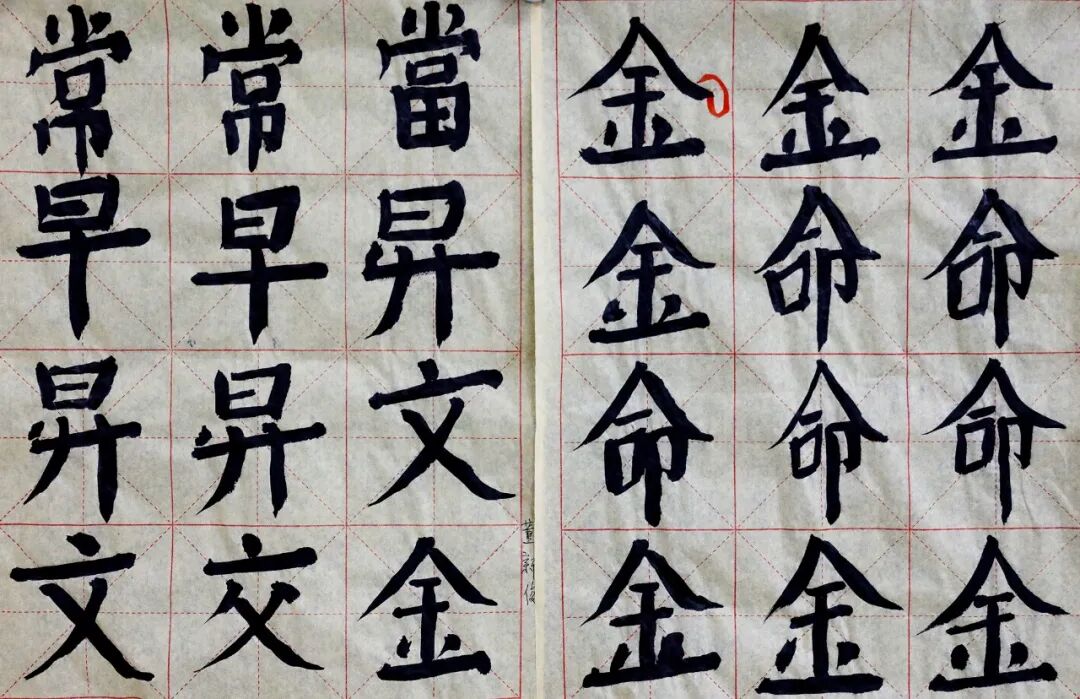 常常當
早早昇
昇昇文
文交金
董
金金金
金命命
命命命
金金金